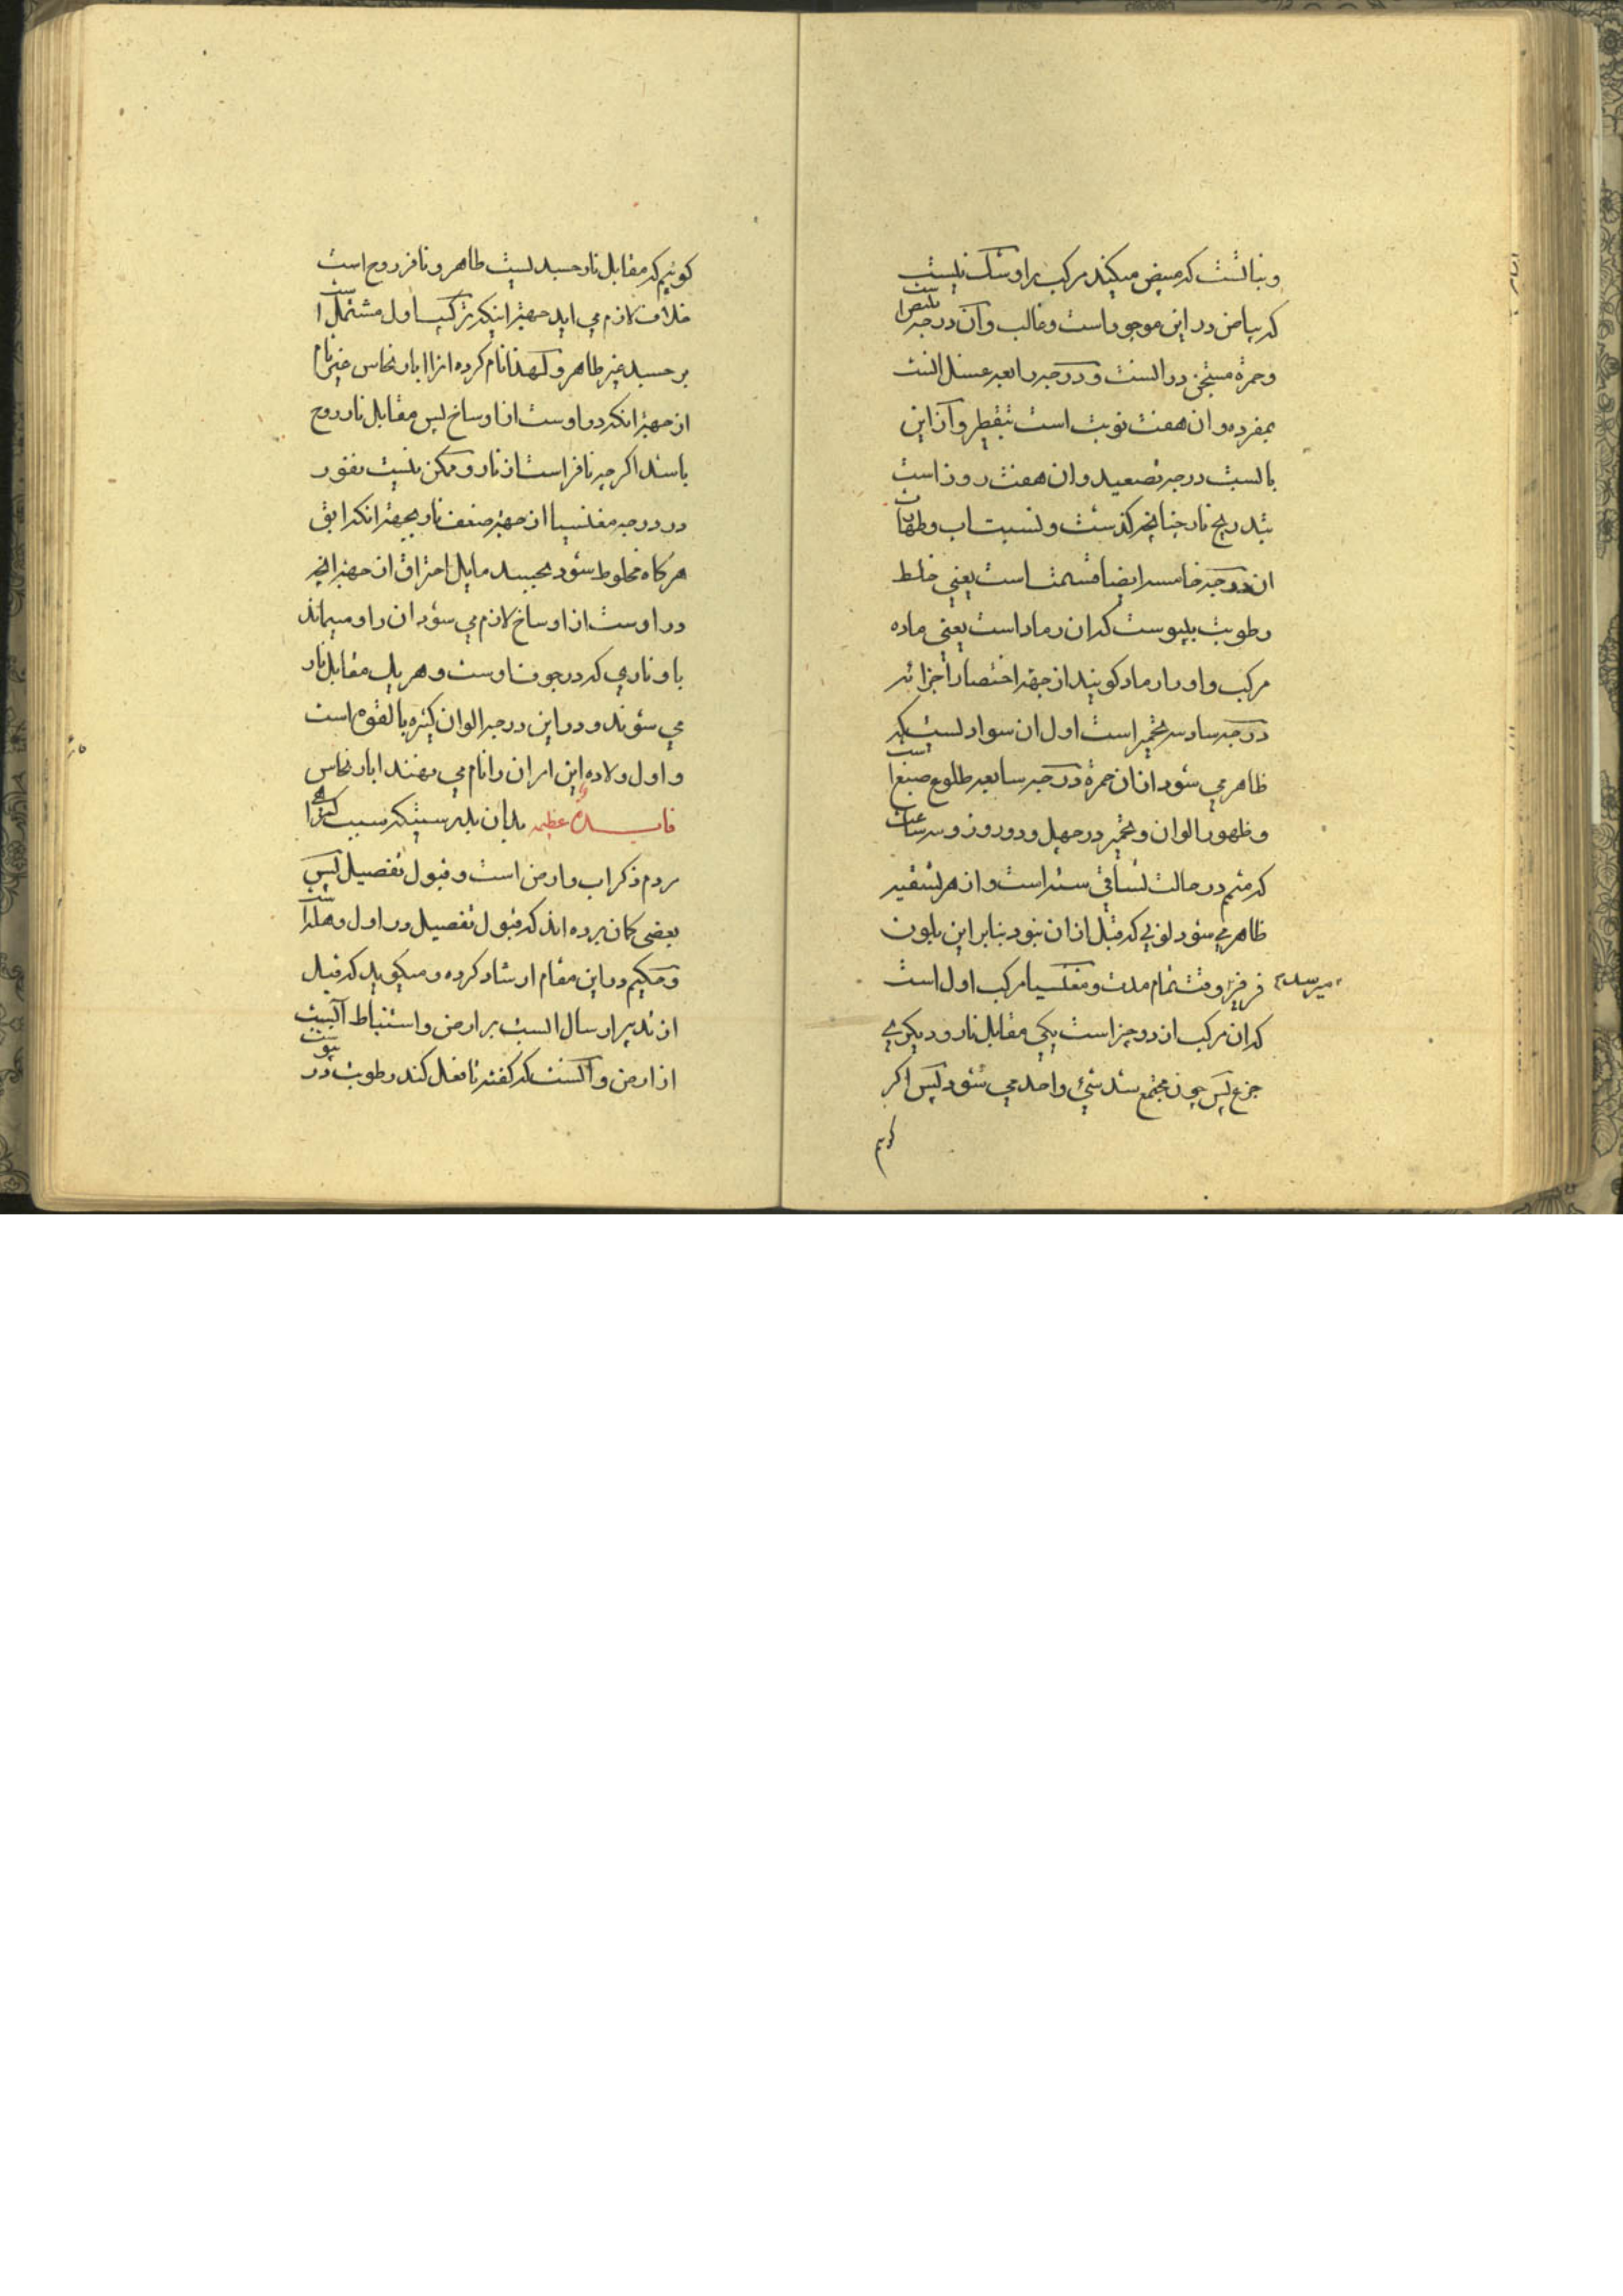 کدرمبیض میکند مرکب را وشک نیست
که بیاض در این موجود است وغالب وآن درجه
وحمرة مستجن در انست ودرجه رابعه غسل انست
بمفرده وان هفت نوبت است بتقطیر وآن این
بالست درجه تصعید وان هفت روز است
بتدریج نار چنانچه کذشت ونسبت اب وطهارت
ان درجه خامسه ایضا قسمت است یعنی خلط
رطوبت بیبوست که ان رماد است یعنی ماده
مرکب واو را رماد کویند از جهة اختصار اجزائه
درجه سادسه تخمیر است اول ان سواد لست که
ظاهر می شود از ان حمرة درجه سابعه طلوع صبغ است
وظهور الوان وتخمیر در چهل ودو روز وسه ساعت
که متمم در حالت تساقی سته است واز هر تسقیه
ظاهر می شود لونی که قبل از ان نبود بنابر این بلون
فرفیر وقت تمام مدت ومغنسیا مرکب اول است
میرسد
که ان مرکب از دو چیز است یکی مقابل نار ودیکری
جزع پس چون مجتمع شد شیٔ واحد می شود پس اکر
کویم
کوئیم که مقابل نار جسد لیست طاهر ونافر روح است
خلاف لازم می اید جهة اینکه ترکیب اول مشتمل است
بر جسد غیر طاهر ولهذا نام کرده انرا ابار نحاس غیر تام
از جهة انکه در اوست از اوساخ پس مقابل نار روح
باشد اکرچه نافر است از نار وممکن نیست نفور
در درجه مغنسیا از جهة ضعف نار بجهة انکه ابق
هرکاه مخلوط شود بجسد مایل احتراق از جهة انچه
در اوست از اوساخ لازم می شود ان را ومیماند
با و ناری که در جوف اوست وهر یک مقابل نار
می شوند ودر این درجه الوان کثیره بالقوه است
واول ولاده این ان را نام می نهند ابار نحاس
فایده عظیمه بدان بدرستیکه سبب کمراهی
مردم ذکر اب وارض است وقبول تفصیل پس
بعضی کمان برده اند که قبول تفصیل در اول وهله است
وحکیم در این مقام ارشاد کرده ومیکوید که قبل
از تدبیر ارسال است بر ارض واستنباط اب
از ارض وانست که کفته تا فعل کند رطوبت در
یبوست